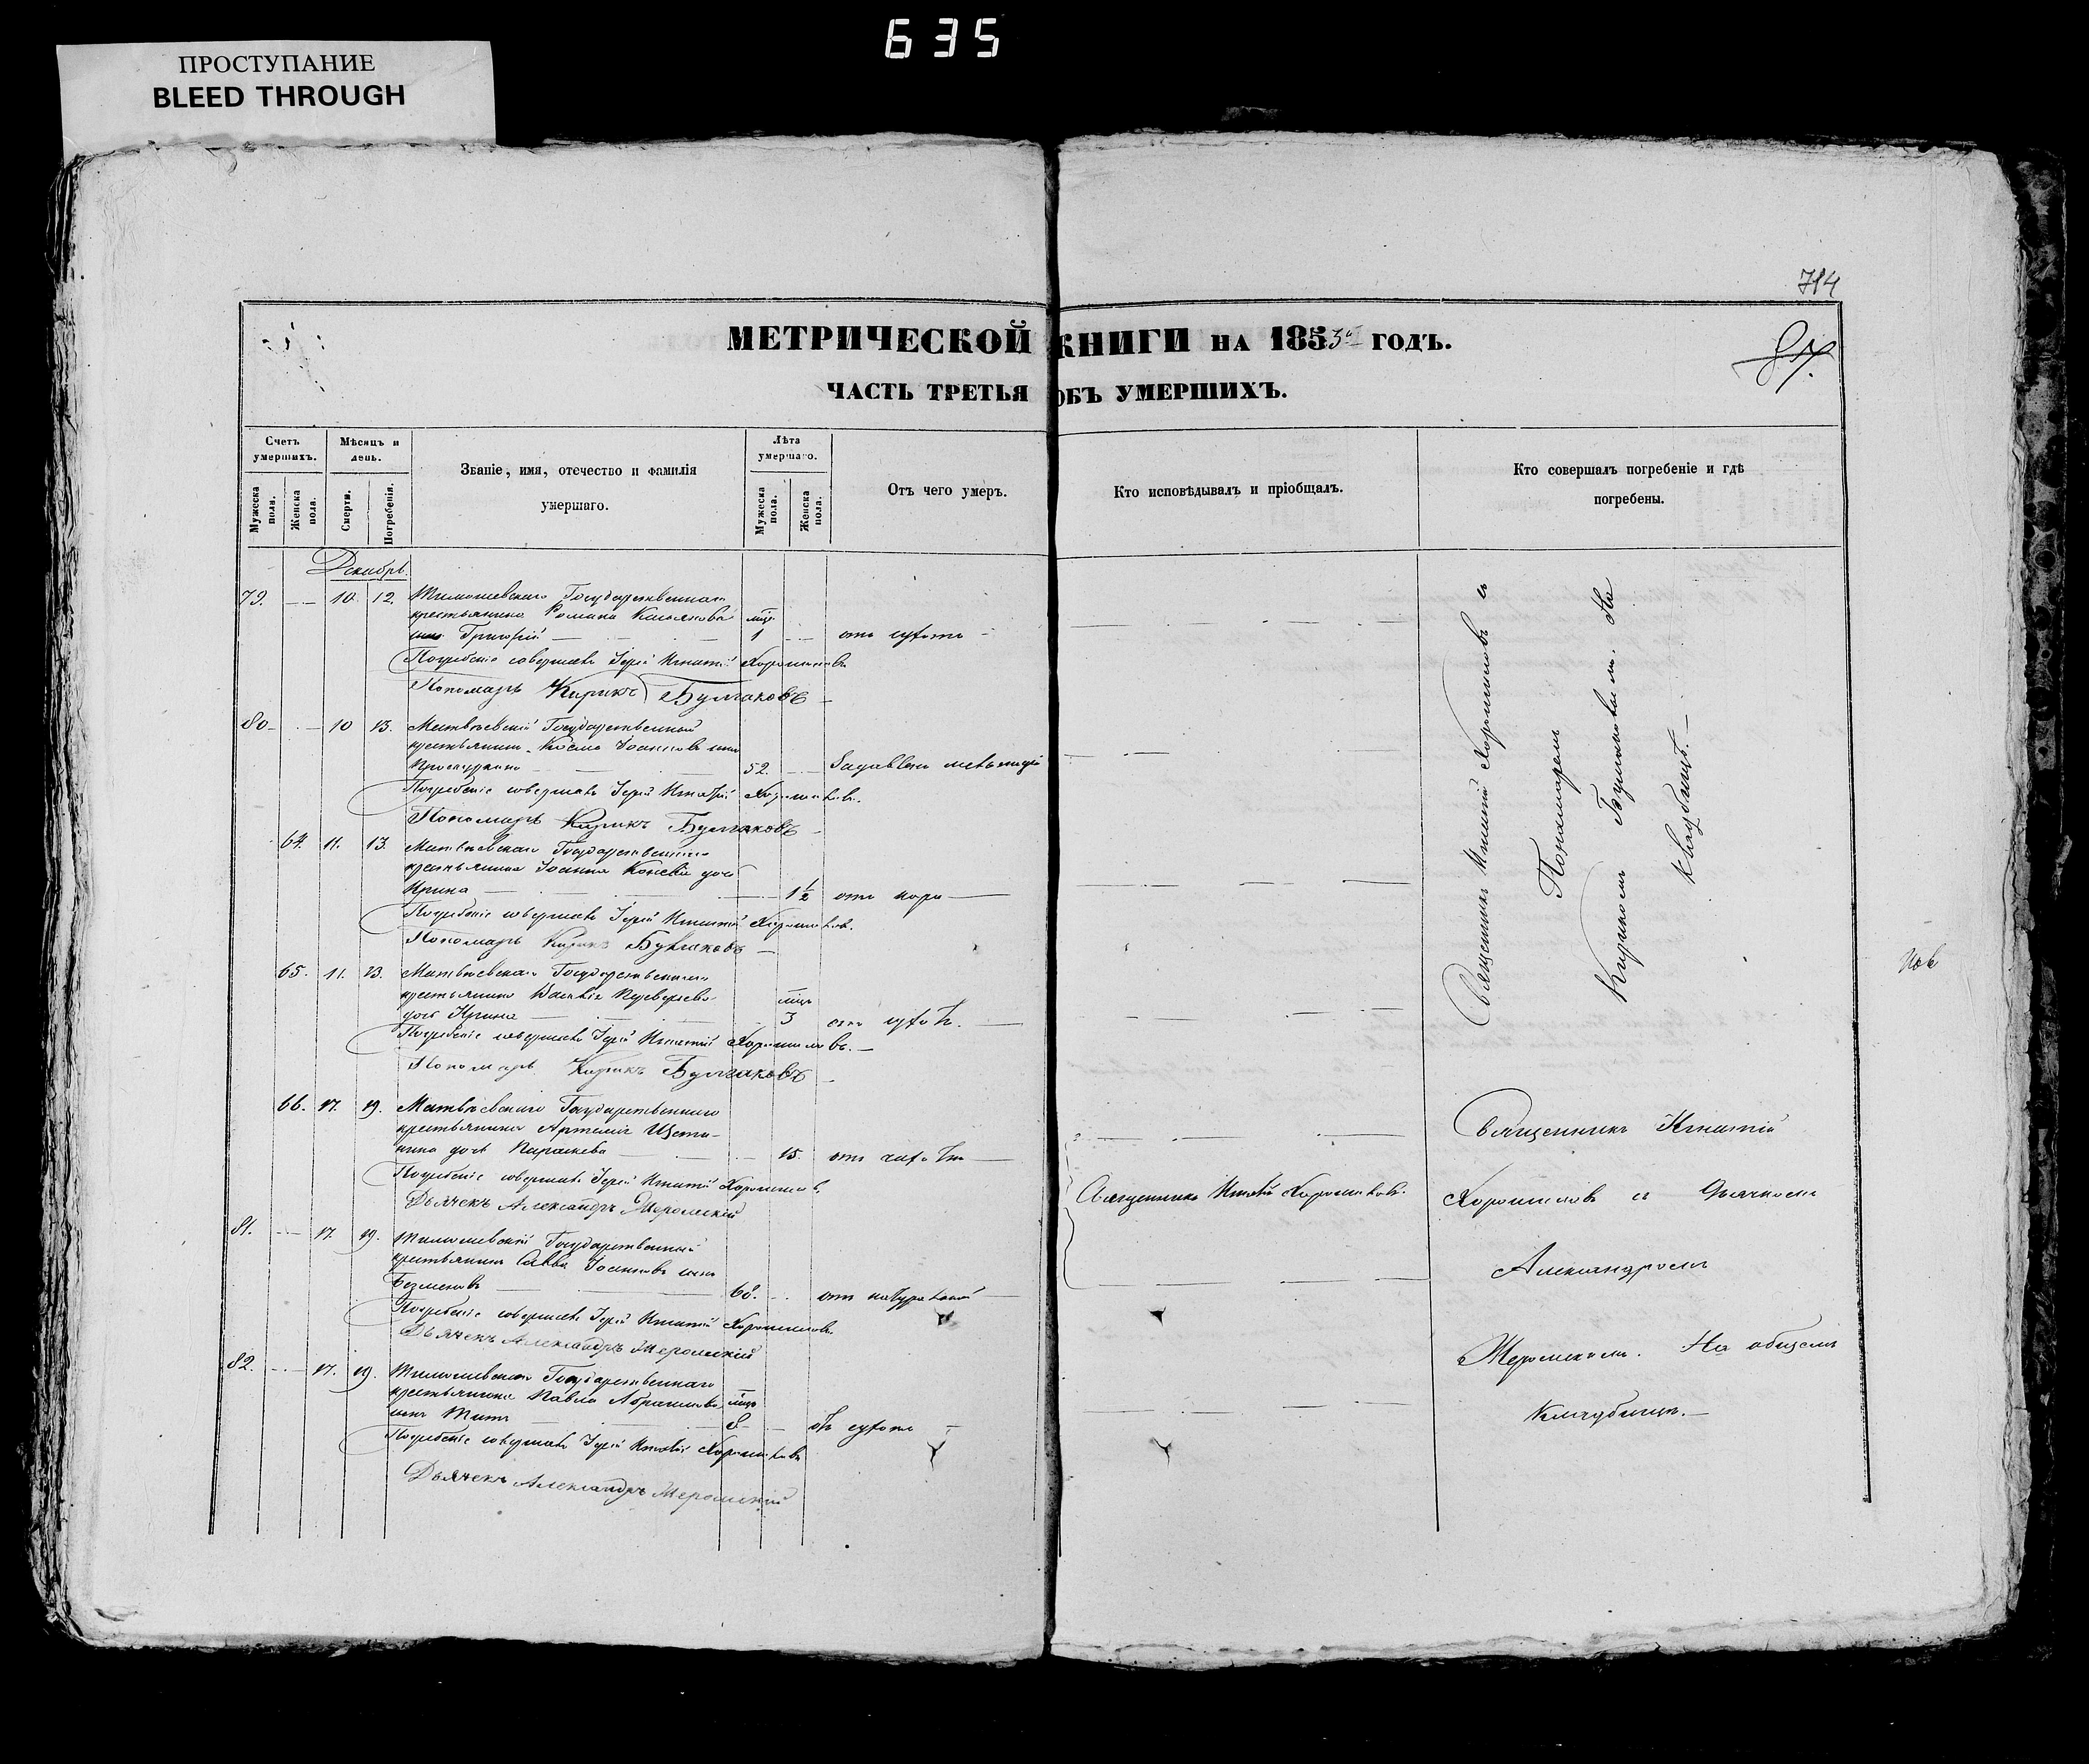 635
ПРОСТУПАНИЕ
BLEED THROUGH
794
МЕТРИЧЕСКОЙ КНИГИ НА 1853 ГОДЪ.
87.
ЧАСТЬ ТРЕТЬЯ ОБЪ УМЕРШИХЪ.
Счетъ умершихъ.
Мѣсяцъ и день.
Званіе, имя, отечество и фамилія умершаго.
Лѣта умершаго.
Отъ чего умеръ.
Кто исповѣдывалъ и пріобщалъ.
Кто совершалъ погребеніе и гдѣ погребены.
Мужеска пола.
Женска пола.
Смерти.
Погребенія.
Мужеска пола.
Женска пола.
Декабрь
79. 10. 12. Государственнаго
крестьянина Романа
сынъ Григорій 1
Погребеніе совершалъ Іерей Игнатій Хорошиловъ
Пономарь Кирикъ Булгаковъ
80 10 13. Матвѣевскій Государственной
крестьянинъ Косма Іоанновъ сынъ
52.
Погребеніе совершалъ Іерей Игнатій Хорошиловъ.
Пономарь Кирикъ Булгаковъ
64. 11. 13. Матвѣевскаго Государственнаго
крестьянина Іоанна дочь
Ирина 1½ отъ кори
Погребеніе совершалъ Іерей Игнатій Хорошиловъ.
Пономарь Кирикъ Булгаковъ
65. 11. 13. Матвѣевскаго Государственнаго
крестьянина
дочь Ирина 3
Погребеніе совершалъ Іерей Игнатій Хорошиловъ.
Пономарь Кирикъ Булгаковъ
66. 17. 19. Матвѣевскаго Государственнаго
крестьянина Артемія Щети-
нина дочь Параскева 15.
Погребеніе совершалъ Іерей Игнатій Хорошиловъ
Дьячекъ Александръ Жеромскій
81. 17. 19. Государственный
крестьянинъ Савва Іоанновъ сынъ
Безменовъ 68. отъ натуральной
Погребеніе совершалъ Іерей Игнатій Хорошиловъ.
Дьячекъ Александръ Жеромскій
82. 17. 19. Государственнаго
крестьянина Павла Абрамова
сынъ Титъ 8
Погребеніе совершалъ Іерей Игнатій Хорошиловъ
Дьячекъ Александръ Жеромскій
Священникъ Игнатій Хорошиловъ.
Священникъ Игнатій Хорошиловъ съ
Пономаремъ
Кирикомъ Булгаковымъ. На
кладбищѣ.
Священникъ Игнатій
Хорошиловъ съ Дьячкомъ
Александромъ
Жеромскимъ. На общемъ
Кладбищѣ.